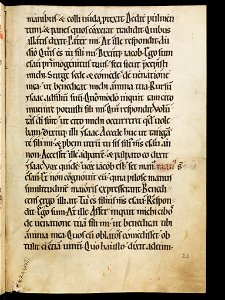 manibus & colli nuda protexit. Dedit pulmen
tum. & panes quos coxerat tradidit. Quibus
illatis dixit. Pater mi. At ille respondit. Au
dio. Quis es tu fili mi. Dixitq; iacob. Ego sum
esau primogenitus tuus. feci sicut precepisti
michi. Surge sede & comede de uenatione
mea. ut benedicat michi anima tua. Rursum
ysaac ad filium suum. Quomodo inquit tam cito
inuenire potuisti fili mi. Qui respondit. Volun
tas dei fuit ut cito michi occurreret quod uole
bam. Dixitq; illi ysaac. Accede huc ut tangam
te fili mi. & probem utrum tu sis filius meus esau. an
non. Accessit ille ad patrem. & palpato eo dixit
ysaac. Vox quidem uox iacob est. sed manus manus
esau. Et non cognouit eum. quia pilose manus
similitudinem maioris expresserant. Benedi
cens ergo illi ait. Tu es filius meus esau. Respon
dit. Ego sum. At ille. Affer inquit michi cibos
de uenatione tua fili mi. ut benedicat tibi
anima mea. Quos cum oblatos comedisset. ob
tulit ei etiam uinum. Quo hausto dixit ad eum.